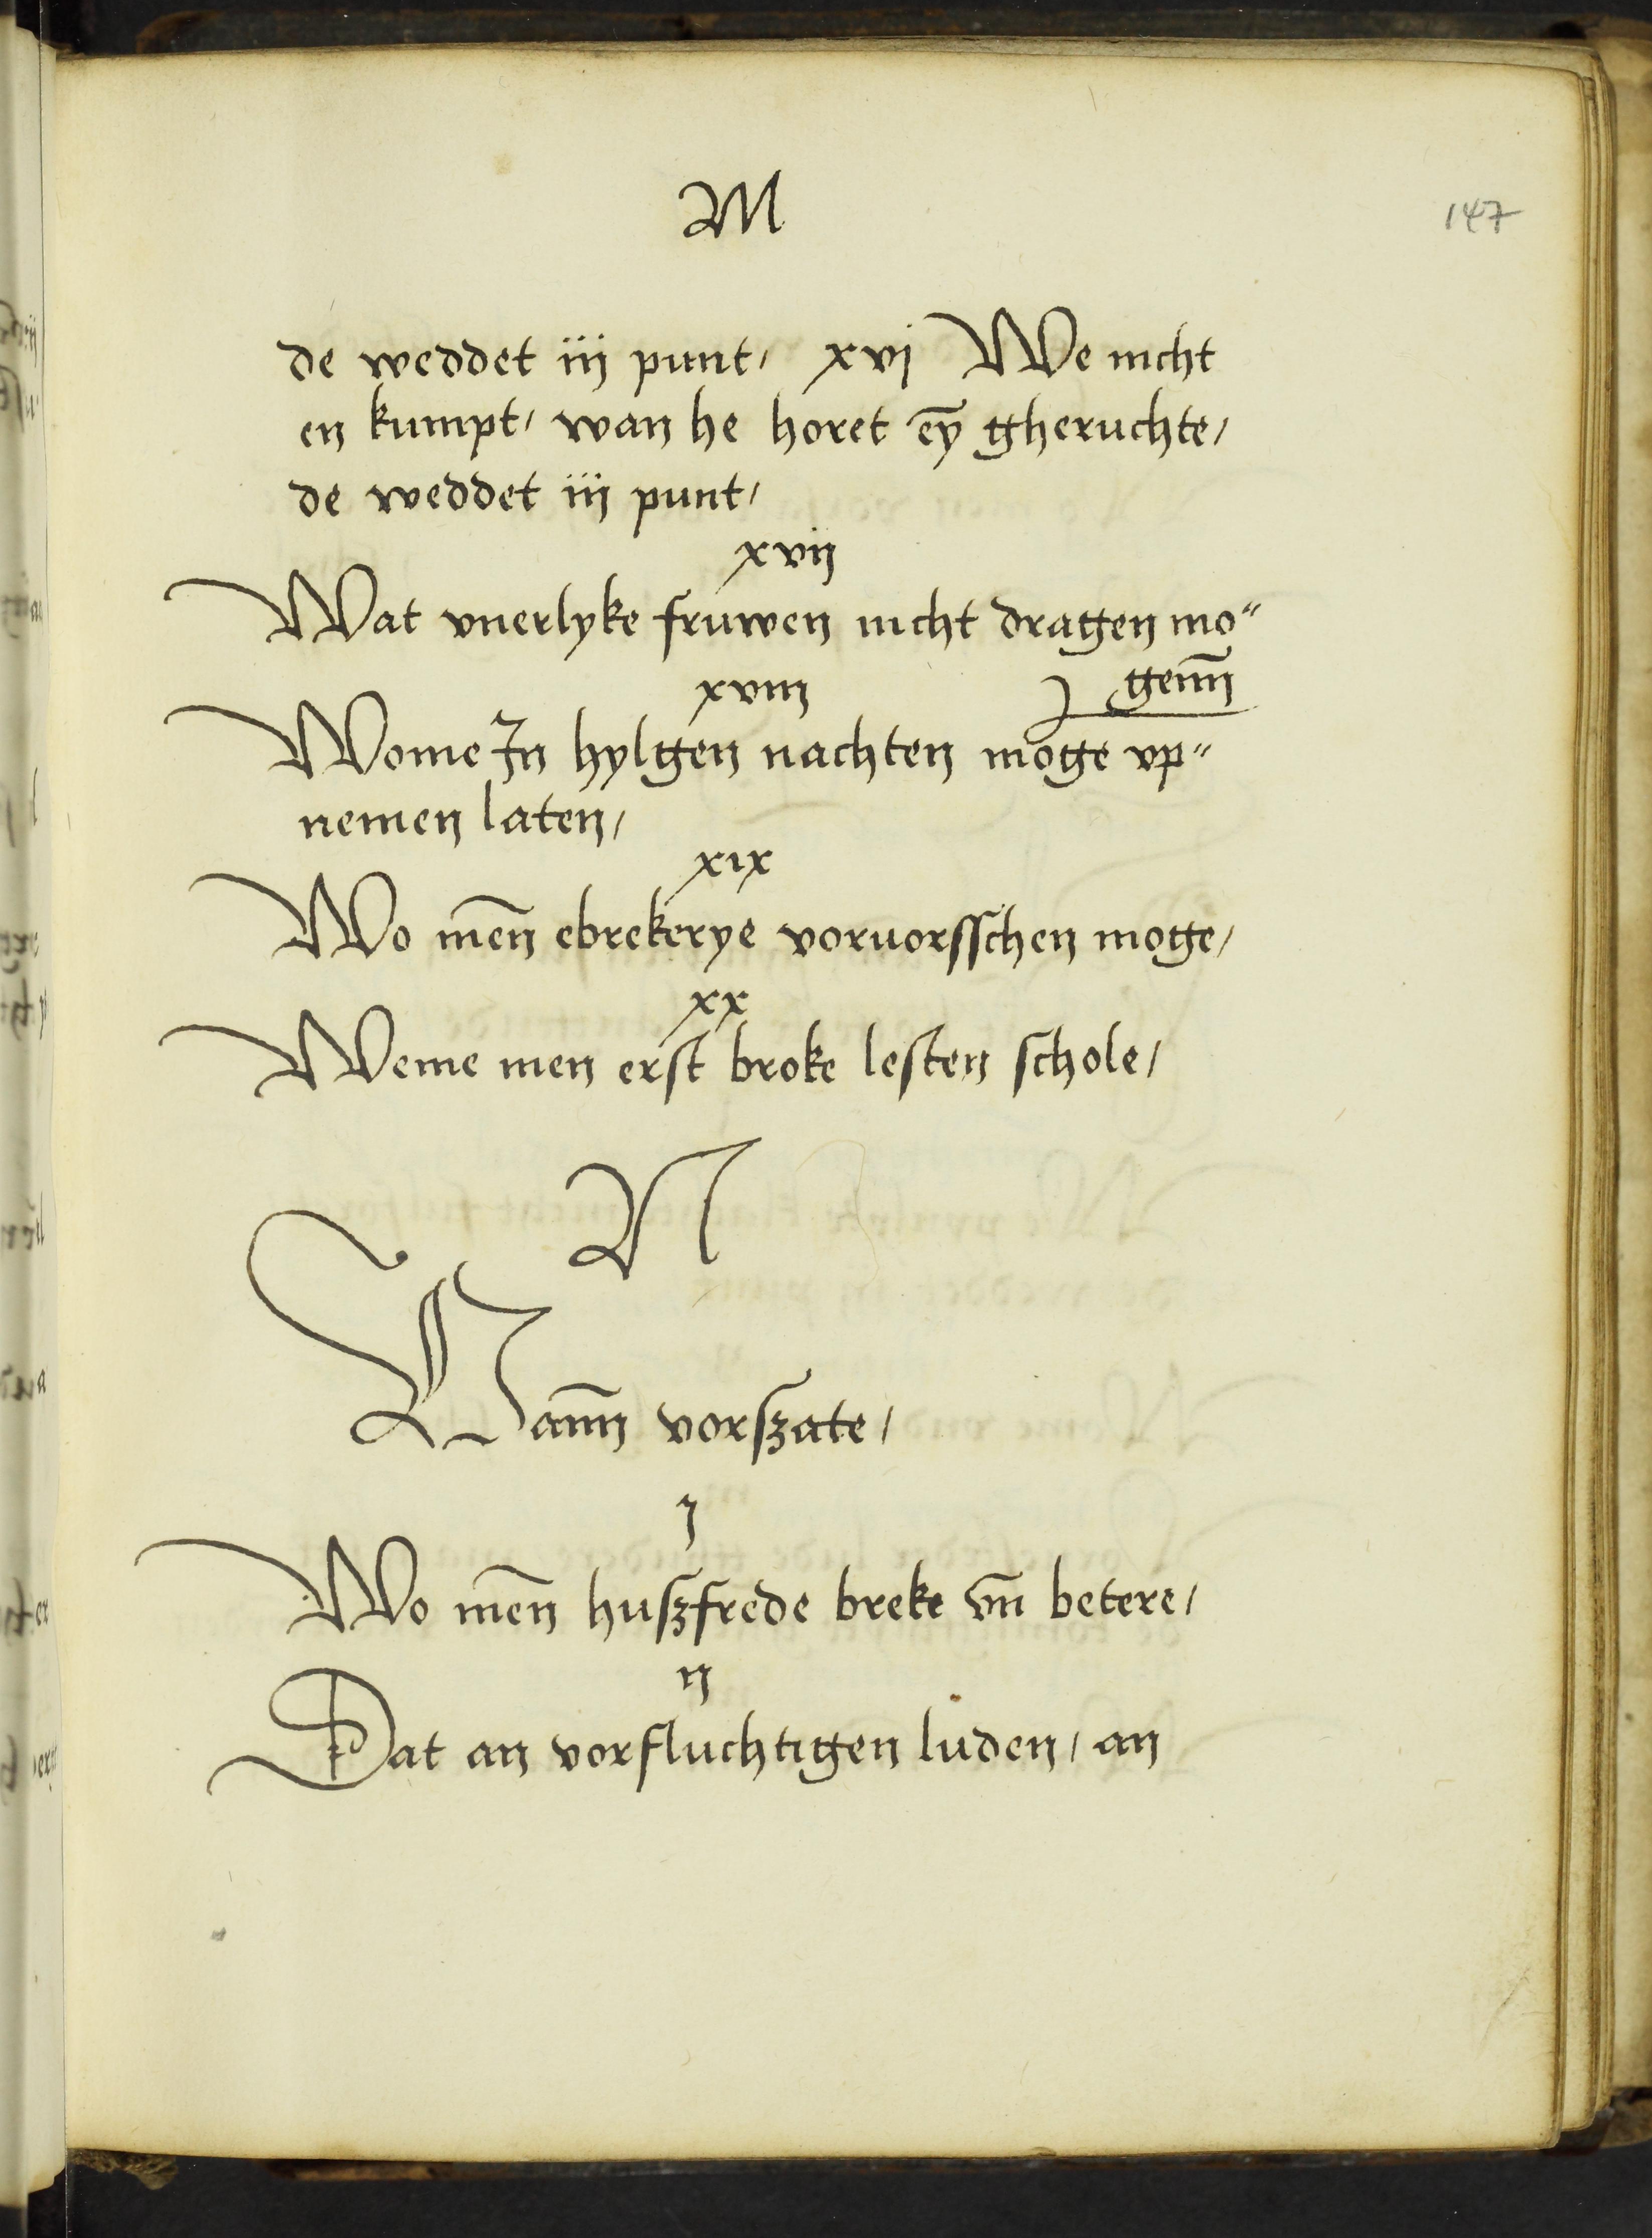 M
147
de weddet iij punt/ xvj We nicht
en kumpt/ wan he horet eȳ gheruchte/
de weddet iij punt/
xvij
Wat vnerlyke fruwen nicht dragen mo"
genn̄
xviij
Wome In hylgen nachten moge vp"
nemen laten/
xix
Wo men̄ ebrekerye voruorsschen moge/
xx
Weme men erst broke lesten schole/
N
Nann vorszate/
j
Wo men̄ huszfrede breke vn̄ betere/
ij
Dat an vorfluchtigen luden/ an